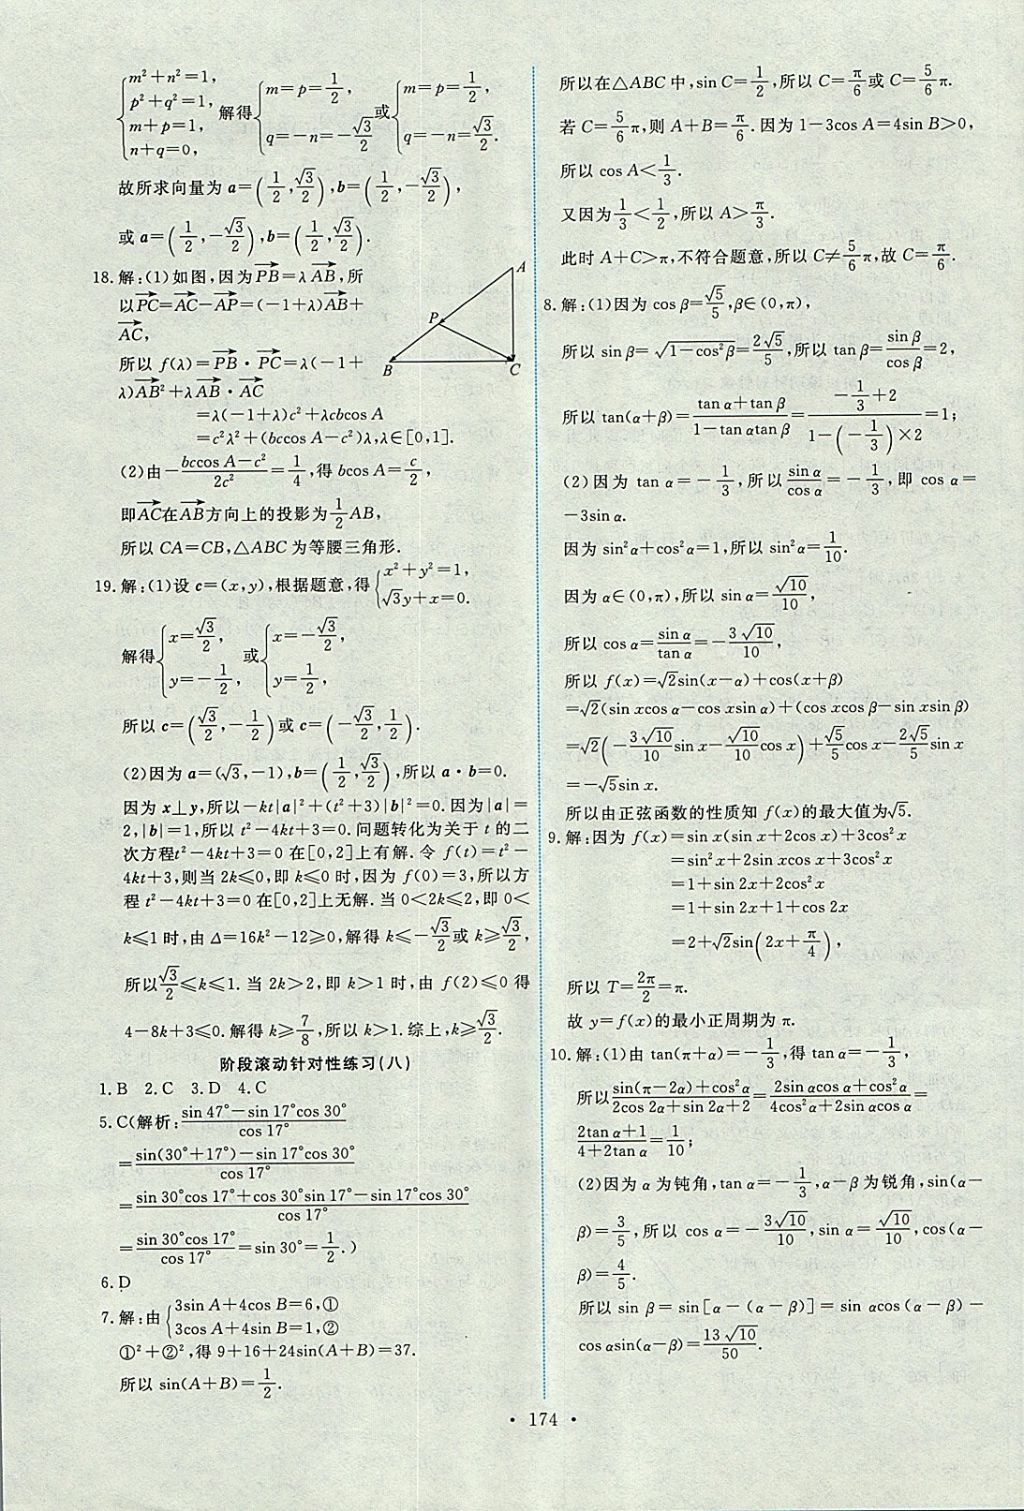 {m²+n²=1, p²+q²=1, m+p=1, n+q=0, 解得{m=p=1/2, q=-n=-√3/2 或{m=p=1/2, q=-n=√3/2.
故所求向量为a=(1/2,√3/2),b=(1/2,-√3/2),
或a=(1/2,-√3/2),b=(1/2,√3/2).
18.解:(1)如图,因为PB→=λAB→,所
以PC→=AC→-AP→=(-1+λ)AB→+
AC→,
所以f(λ)=PB→·PC→=λ(-1+
λ)AB→²+λAB→·AC→
=λ(-1+λ)c²+λcbcos A
=c²λ²+(bccos A-c²)λ,λ∈[0,1].
A
P
B
C
(2)由-(bccos A-c²)/2c²=1/4,得bcos A=c/2,
即AC→在AB→方向上的投影为1/2AB,
所以CA=CB,△ABC为等腰三角形.
19.解:(1)设c=(x,y),根据题意,得{x²+y²=1, √3y+x=0.
解得{x=√3/2, y=-1/2, 或{x=-√3/2, y=1/2,
所以c=(√3/2,-1/2)或c=(-√3/2,1/2).
(2)因为a=(√3,-1),b=(1/2,√3/2),所以a·b=0.
因为x⊥y,所以-kt|a|²+(t²+3)|b|²=0.因为|a|=
2,|b|=1,所以t²-4kt+3=0.问题转化为关于t的二
次方程t²-4kt+3=0在[0,2]上有解.令f(t)=t²-
4kt+3,则当2k≤0,即k≤0时,因为f(0)=3,所以方
程t²-4kt+3=0在[0,2]上无解.当0<2k≤2,即0<
k≤1时,由Δ=16k²-12≥0,解得k≤-√3/2或k≥√3/2,
所以√3/2≤k≤1.当2k>2,即k>1时,由f(2)≤0得
4-8k+3≤0.解得k≥7/8,所以k>1.综上,k≥√3/2.
阶段滚动针对性练习(八)
1.B 2.C 3.D 4.C
5.C(解析:(sin 47°-sin 17°cos 30°)/cos 17°
=(sin(30°+17°)-sin 17°cos 30°)/cos 17°
=(sin 30°cos 17°+cos 30°sin 17°-sin 17°cos 30°)/cos 17°
=(sin 30°cos 17°)/cos 17°=sin 30°=1/2.)
6.D
7.解:由{3sin A+4cos B=6,① 3cos A+4sin B=1,②
①²+②²,得9+16+24sin(A+B)=37.
所以sin(A+B)=1/2.
所以在△ABC中,sin C=1/2,所以C=π/6或C=5/6π.
若C=5/6π,则A+B=π/6.因为1-3cos A=4sin B>0,
所以cos A<1/3.
又因为1/3<1/2,所以A>π/3.
此时A+C>π,不符合题意,所以C≠5/6π,故C=π/6.
8.解:(1)因为cos β=√5/5,β∈(0,π),
所以sin β=√(1-cos²β)=2√5/5,所以tan β=sin β/cos β=2,
所以tan(α+β)=(tan α+tan β)/(1-tan αtan β)=(-1/3+2)/(1-(-1/3)×2)=1;
(2)因为tan α=-1/3,所以sin α/cos α=-1/3,即cos α=
-3sin α.
因为sin²α+cos²α=1,所以sin²α=1/10.
因为α∈(0,π),所以sin α=√10/10,
所以cos α=sin α/tan α=-3√10/10,
所以f(x)=√2sin(x-α)+cos(x+β)
=√2(sin xcos α-cos xsin α)+(cos xcos β-sin xsin β)
=√2(-3√10/10sin x-√10/10cos x)+√5/5cos x-2√5/5sin x
=-√5sin x.
所以由正弦函数的性质知f(x)的最大值为√5.
9.解:因为f(x)=sin x(sin x+2cos x)+3cos²x
=sin²x+2sin xcos x+3cos²x
=1+sin 2x+2cos²x
=1+sin 2x+1+cos 2x
=2+√2sin(2x+π/4),
所以T=2π/2=π.
故y=f(x)的最小正周期为π.
10.解:(1)由tan(π+α)=-1/3,得tan α=-1/3,
所以(sin(π-2α)+cos²α)/(2cos 2α+sin 2α+2)=(2sin αcos α+cos²α)/(4cos²α+2sin αcos α)=
(2tan α+1)/(4+2tan α)=1/10;
(2)因为α为钝角,tan α=-1/3,α-β为锐角,sin(α-
β)=3/5,所以cos α=-3√10/10,sin α=√10/10,cos(α-
β)=4/5.
所以sin β=sin[α-(α-β)]=sin αcos(α-β)-
cos αsin(α-β)=13√10/50.
· 174 ·